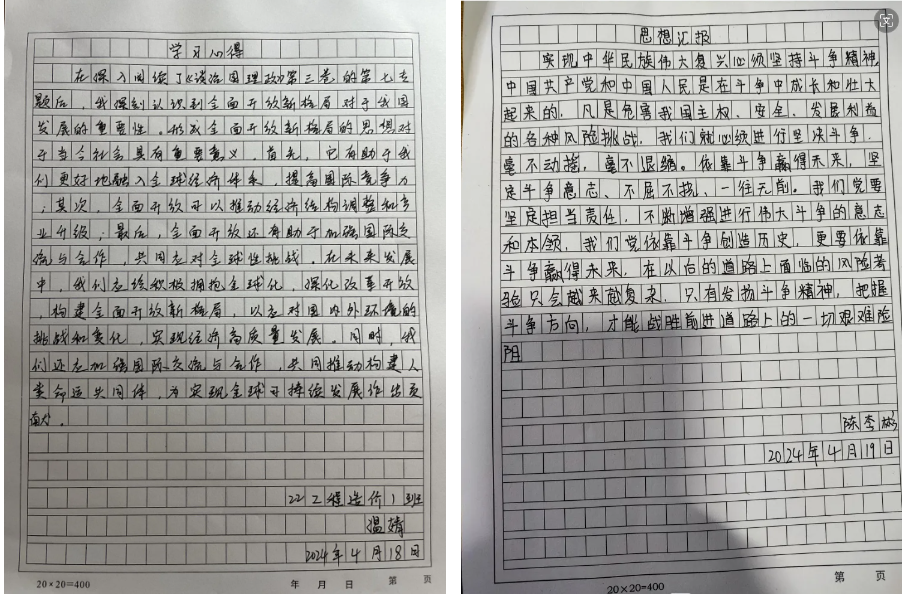 学习心得
在深入阅读了《谈治国理政》第三卷的第七专
题后，我深刻认识到全面开放新格局对于我国
发展的重要性。形成全面开放新格局的思想对
于当今社会具有重要意义。首先，它有助于我
们更好地融入全球经济体系，提高国际竞争力
；其次，全面开放可以推动经济结构调整和产
业升级；最后，全面开放还有助于加强国际交
流与合作，共同应对全球性挑战。在未来发展
中，我们应继续积极拥抱全球化，深化改革开放
，构建全面开放新格局，以应对国内外环境的
挑战和变化，实现经济高质量发展。同时，我
们还应加强国际交流与合作，共同推动构建人
类命运共同体，为实现全球可持续发展作出贡
献。
22工程造价1班
温婧
2024年4月18日
20×20=400 年 月 日 第 页
思想汇报
实现中华民族伟大复兴必须坚持斗争精神，
中国共产党和中国人民是在斗争中成长和壮大
起来的，凡是危害我国主权、安全、发展利益
的各种风险挑战，我们就必须进行坚决斗争，
毫不动摇，毫不退缩。依靠斗争赢得未来，坚
定斗争意志、不屈不挠、一往无前。我们党要
坚定担当责任，不断增强进行伟大斗争的意志
和本领，我们党依靠斗争创造历史，更要依靠
斗争赢得未来，在以后的道路上面临的风险考
验只会越来越复杂，只有发扬斗争精神，把握
斗争方向，才能战胜前进道路上的一切艰难险
阴
陈李彬
2024年4月19日
20×20=400 第 页